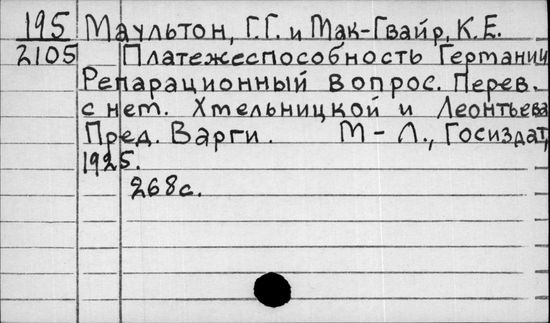 195 Маультон, Г.Г. и Мак-Гвайр, К.Е.
2105 Платежеспособность Германии
Репарационный вопрос. Перев.
с нем. Хмельницкой и Леонтьева
Пред. Варги. М-Л., Госиздат,
1925.
268с.